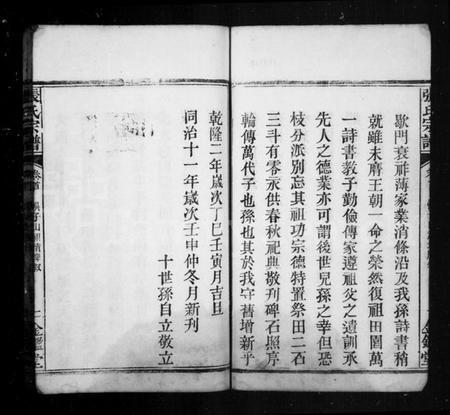 歇門衰祚薄家業消條沿及我孫詩書稍
就雖未膺王朝一命之榮然復祖田園萬
一詩書教子勤儉傳家遵祖父之遺訓承
先人之德業亦可謂後世兒孫之幸但恐
枝分派別忘其祖功宗德特置祭田二石
三斗有零永供春秋祀典敬刋碑石照序
輪傳萬代子也孫也其於我守舊增新乎
乾隆二年歲次丁巳壬寅月吉旦
同治十一年歲次壬申仲冬月新刊
十世孫自立敬立
張氏宗譜
卷首